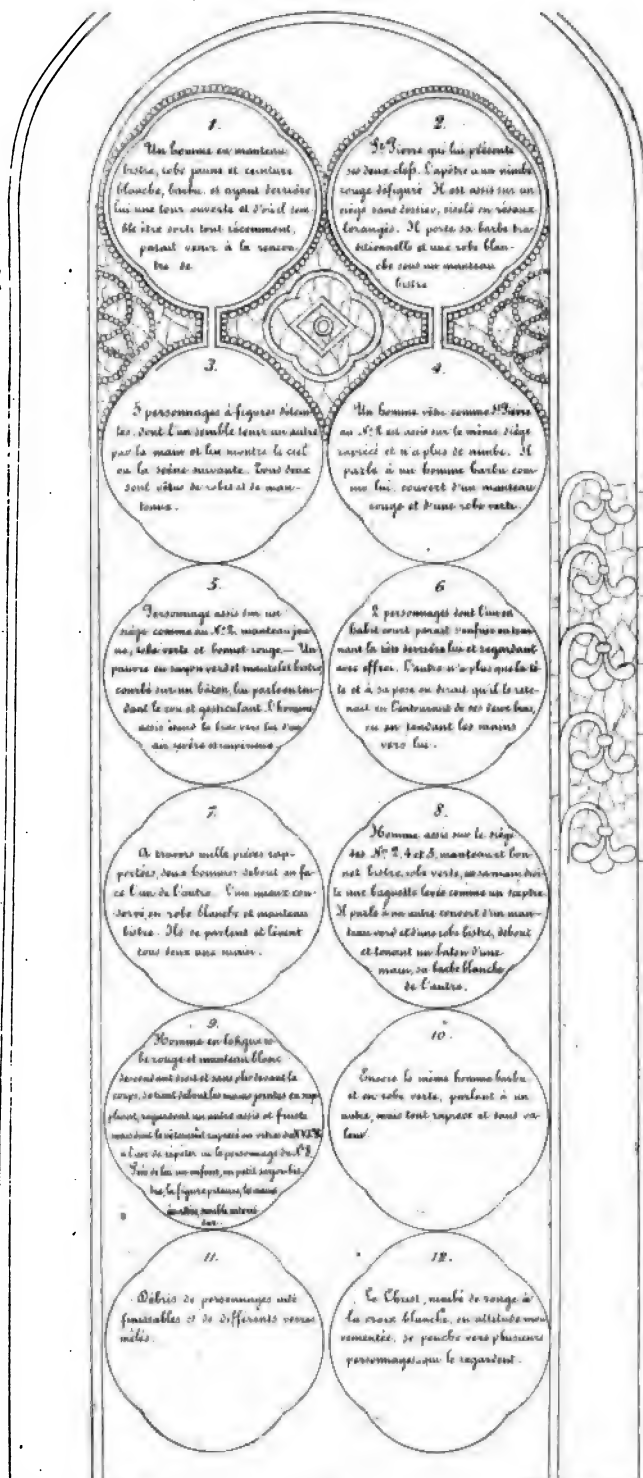 1.
Un homme en manteau
bistre, robe jaune et ceinture
blanche, barbu, et ayant derrière
lui une tour ouverte et d'où il sem
ble être sorti tout récemment,
paraît venir à la rencon-
tre de
2.
St Pierre qui lui présente
ses deux clefs. L'apôtre a un nimbe
rouge défiguré. Il est assis sur un
siège sans dossier, ciselé en réseaux
losangés. Il porte sa barbe tra
ditionnelle et une robe blan-
che sous un manteau
bistre
3.
5 personnages à figures détein
tes, dont l'un semble tenir un autre
par la main et lui montre le ciel
ou la scène suivante. Tous deux
sont vêtus de robes et de man-
teaux.
4.
Un homme vêtu comme St Pierre
au No 2 est assis sur le même siège
rapiécé et n'a plus de nimbe. Il
parle à un homme barbu com-
me lui, couvert d'un manteau
rouge et d'une robe verte.
5.
Personnage assis sur un
siège comme au No 2, manteau jau
ne, robe verte et bonnet rouge. — Un
pauvre en sayon verd et mantelet bistre
courbé sur un bâton, lui parle en ten-
dant le cou et gesticulant. L'homme
assis étend le bras vers lui d'un
air sévère et impérieux.
6
2 personnages dont l'un en
habit court paraît s'enfuir en tour
nant la tête derrière lui et regardant
avec effroi. L'autre n'a plus que la tê-
te et à sa pose on dirait qu'il le rete-
nait en l'entourant de ses deux bras,
ou en tendant les mains
vers lui.
7.
A travers mille pièces rap-
portées, deux hommes debout en fa-
ce l'un de l'autre. L'un mieux con-
servé, en robe blanche et manteau
bistre. Ils se parlent et lèvent
tous deux une main.
8.
Homme assis sur le siège
des Nos 2, 4 et 5, manteau et bon-
net bistre, robe verte, en sa main droi-
te une baguette levée comme un sceptre.
Il parle à un autre couvert d'un man-
teau verd et d'une robe bistre, debout
et tenant un bâton d'une
main, sa barbe blanche
de l'autre.
9.
Homme en longue ro-
be rouge et manteau blanc
descendant droit et sans plis devant le
corps, se tient debout les mains jointes en sup
pliant, regardant un autre assis et fruste
mais dont le vêtement rapiécé en vitres du XVIe S.
a l'air de répéter ici le personnage du No 8.
Près de lui un enfant, en petit sayon bis-
tre, la figure piteuse, les mains
écartées, semble
sur
10.
Encore le même homme barbu
et en robe verte, parlant à un
autre, mais tout rapiécé et sans va-
leur.
11.
Débris de personnages indé
finissables et de différents verres
mêlés.
12.
Le Christ, nimbé de rouge à
la croix blanche, en attitude mou
vementée, se penche vers plusieurs
personnages qui le regardent.